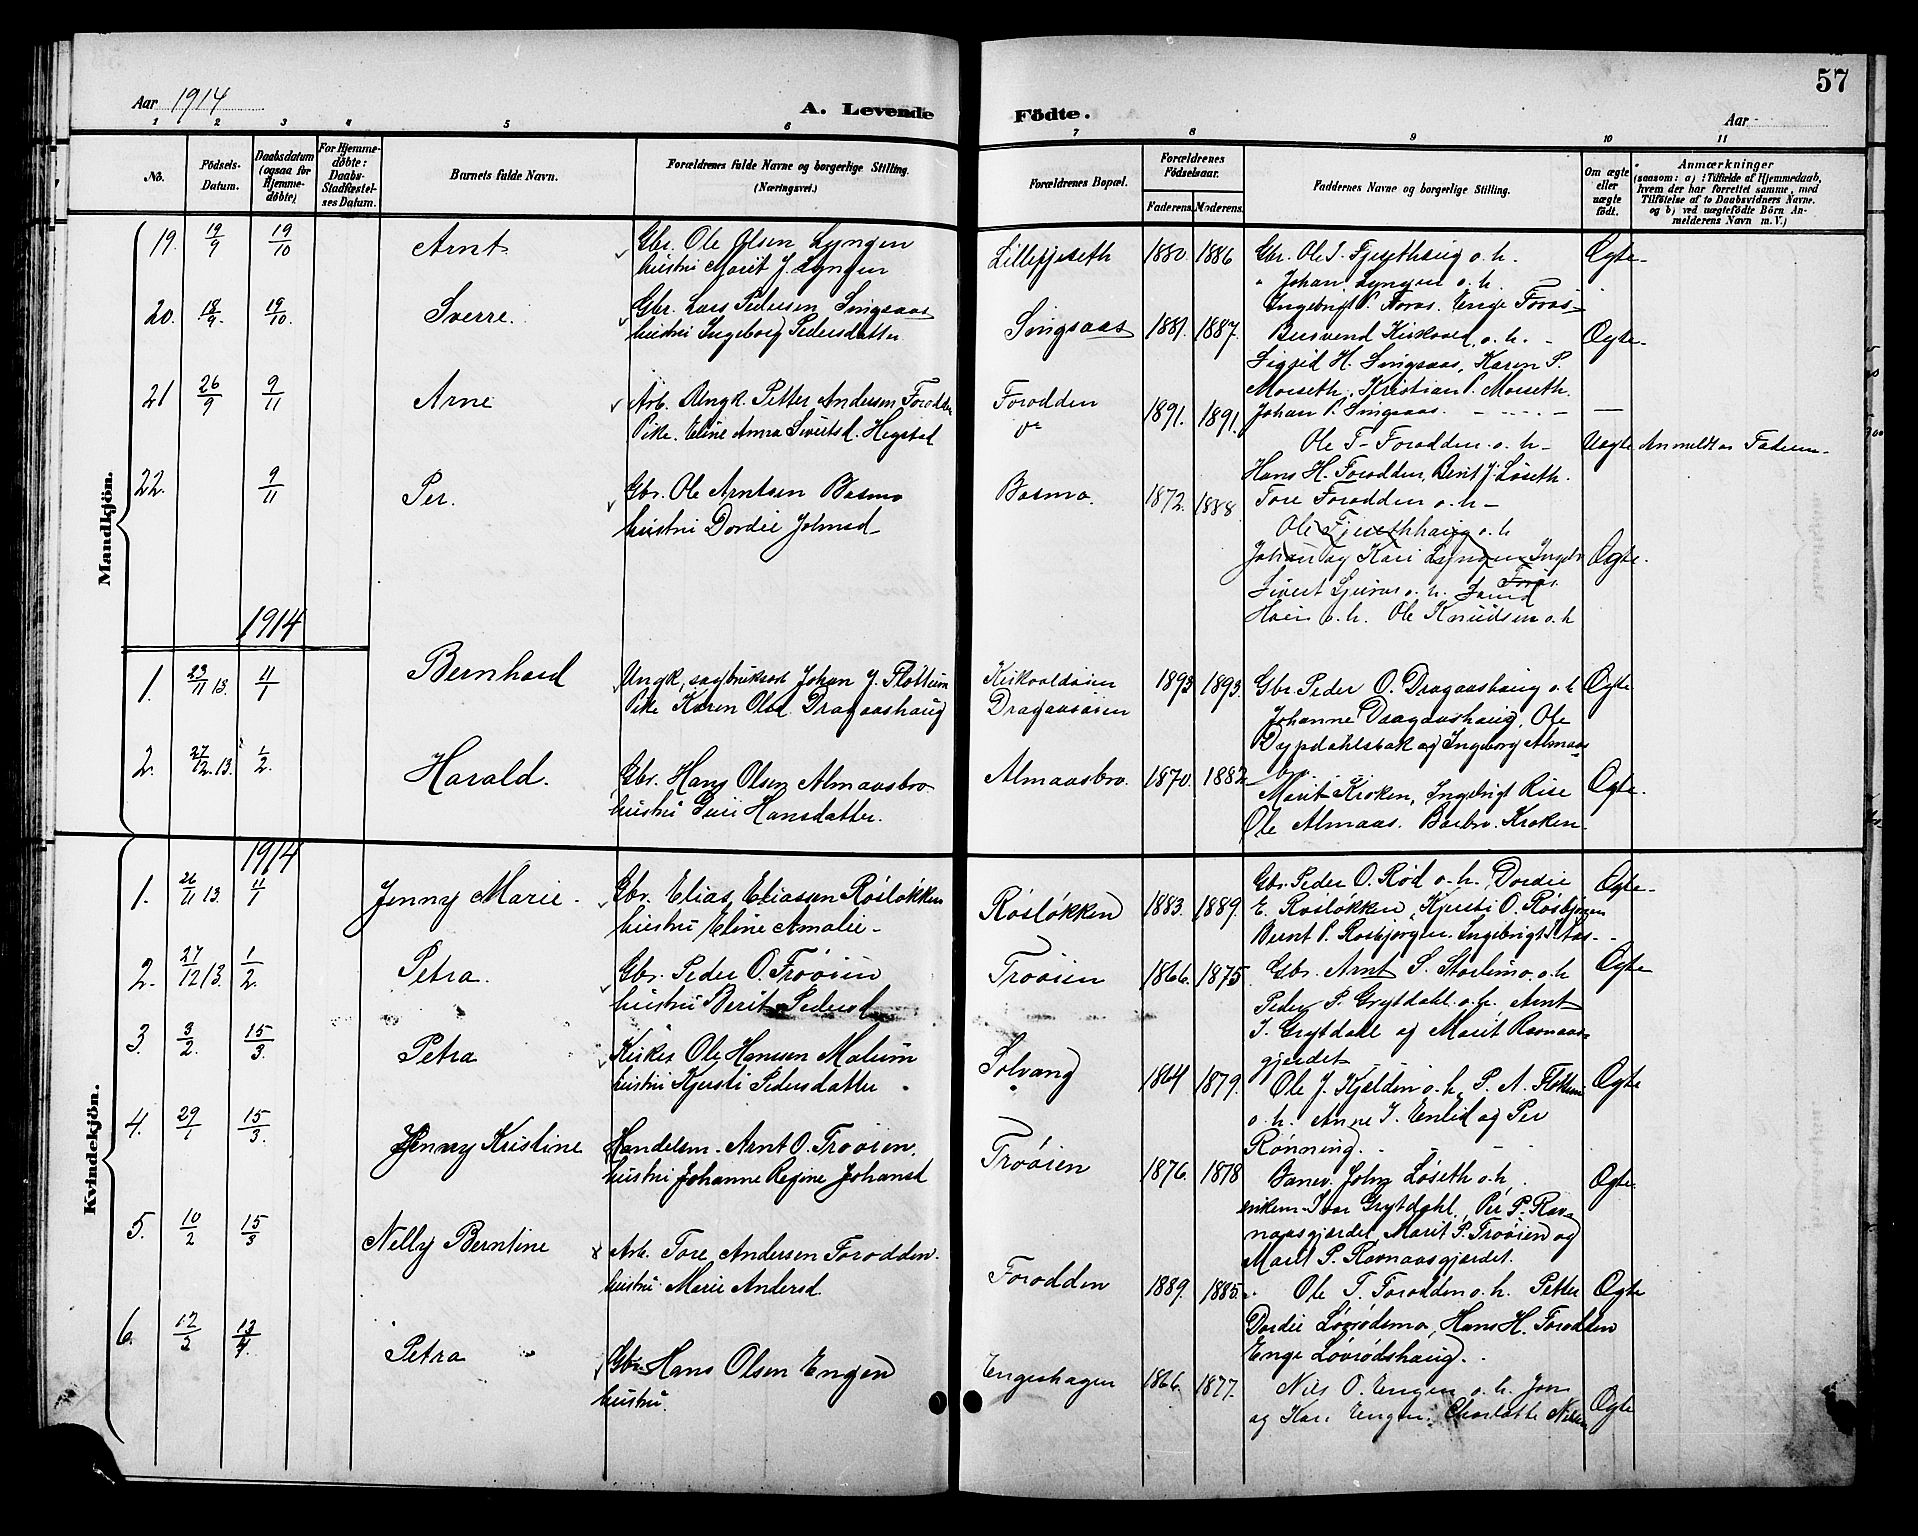 57
Aar 1914
A. Levende Födte.
Aar
1 2 3 4 5 6 7 8 9 10 11
No.
Födsels-Datum.
Daabsdatum (ogsaa for Hjemmedöbte)
For Hjemmedöbte: Daabs-Stadfæstelses Datum.
Barnets fulde Navn.
Forældrenes fulde Navne og borgerlige Stilling. (Næringsvei.)
Forældrenes Bopæl.
Forældrenes Födselsaar.
Faderens. Moderens.
Faddernes Navne og borgerlige Stilling.
Om ægte eller uægte födt.
Anmærkninger
(saasom: a) i Tilfælde af Hjemmedaab, hvem der har forrettet samme, med Tilföielse af to Daabsvidners Navne. og b) ved uægtefödte Börn Anmelderens Navn m. V.)
Mandkjön.
19. 19/9 19/10 Arnt Gbr. Ole Olsen Lyngen Lillefjeseth 1880. 1886 Gbr. Ole I. Fjesethhaug o. h. Ægte
hustru Marit J. Lyngen " Johan Lyngen o. h.
Ingebrigt P. Foros. Enge Foros
20. 18/9. 19/10. Sverre. Gbr. Lars Pedersen Singsaas Singsaas 1881. 1887. Kirkvold o. h. Ægte
hustru Ingeborg Pedersdatter H. Singsaas, Karen P.
Morseth, Kristian P. Morseth.
21 26/9 9/11 Arne Arb. Ungk. Petter Andersen Forodden Forodden 1891. 1891. Johan P. Singsaas.
Pike. Eline Anna Sivertsd. Hegstad
Ole T. Forodden o. h. Uægte Anmeldt av Faderen
Hans H. Forodden, Berit J. Løseth.
22. 9/11 Per. Gbr. Ole Arntsen Basmo Basmo. 1872. 1888. Tore Forodden o. h
hustru Dordie Johnsd Ole Fjesethhaug o. h
Johan og Kari Lyngen Ægte.
Foros.
Sivert o. h.
o. h. Ole Knudsen o. h
1914
1. 23/11 13. 11/1 Bernhard Ungk, Johan J. Flöttum 1893 1893. Gbr. Peder O. Dragaashaug o. h Ægte
Pike Karen Olsd. Dragaashaug Dragaasøien Johanne Dragaashaug, Ole
Dypdahlsbak og Ingeborg Almaasbro.
2. 27/12.13. 1/2. Harald. Gbr. Hans Olsen Almaasbro Almaasbro. 1870. 1882 Marit Kroken, Ingebrigt Rise Ægte
hustru Guri Hansdatter. Ole Almaas. Barbro Kroken
Kvindekjön.
1914
1. 26/11 13. 4/1 Jenny Marie. Gbr. Elias Eliasen Røsløkken Røsløkken 1883. 1889. Gbr. Peder O. Rød o. h. Dordie Ægte
hustru Eline Amalie E. Røsløkken, Kjersti O. Rosbjørgen
Bernt P. Rosbjørgen. Ingebrigt Aas
2. 27/12 13. 1/2. Petra. Gbr. Peder O. Trøøien Trøøien 1866. 1875 Gbr. Arnt S. Storlimo o. h Ægte
hustru Berit Pedersd Peder P. Grytdahl o. h. Arnt
I. Grytdahl og Marit Ravnaasgjerdet
3. 3/2. 15/3. Petra Kirkes. Ole Hansen Malum Solvang 1864 1879. Ole J. Kjelden o. h. P. A. Fløttum Ægte
hustru Kjersti Pedersdatter o. h. Anne I. Enlid og Per
Rønning.
4. 29/1 15/3. Jenny Kristine Handelsm. Arnt O. Trøøien. Trøøien 1876. 1878 Banev. John Løseth o. h Ægte
hustru Johanne Regine Johansd enkem. Ivar Grytdahl, Per P. Ravnaasgjerdet, Marit P. Trøøien og
Marit P. Ravnaasgjerdet.
5. 10/2 15/3 Nelly Berntine Arb. Tore Andersen Forodden. Forodden 1889. 1885. Ole T. Forodden o. h. Petter Ægte
hustru Marie Andersd Dordie Løvrødsmo, Hans H. Forodden
Enge Løvrødshaug.
6. 12/3 13/4 Petra Gbr. Hans Olsen Engen Engeshagen 1866. 1877. Nils O. Engen o. h. Jon Ægte
hustru. og Kari Engen. Charlotte Nilsen